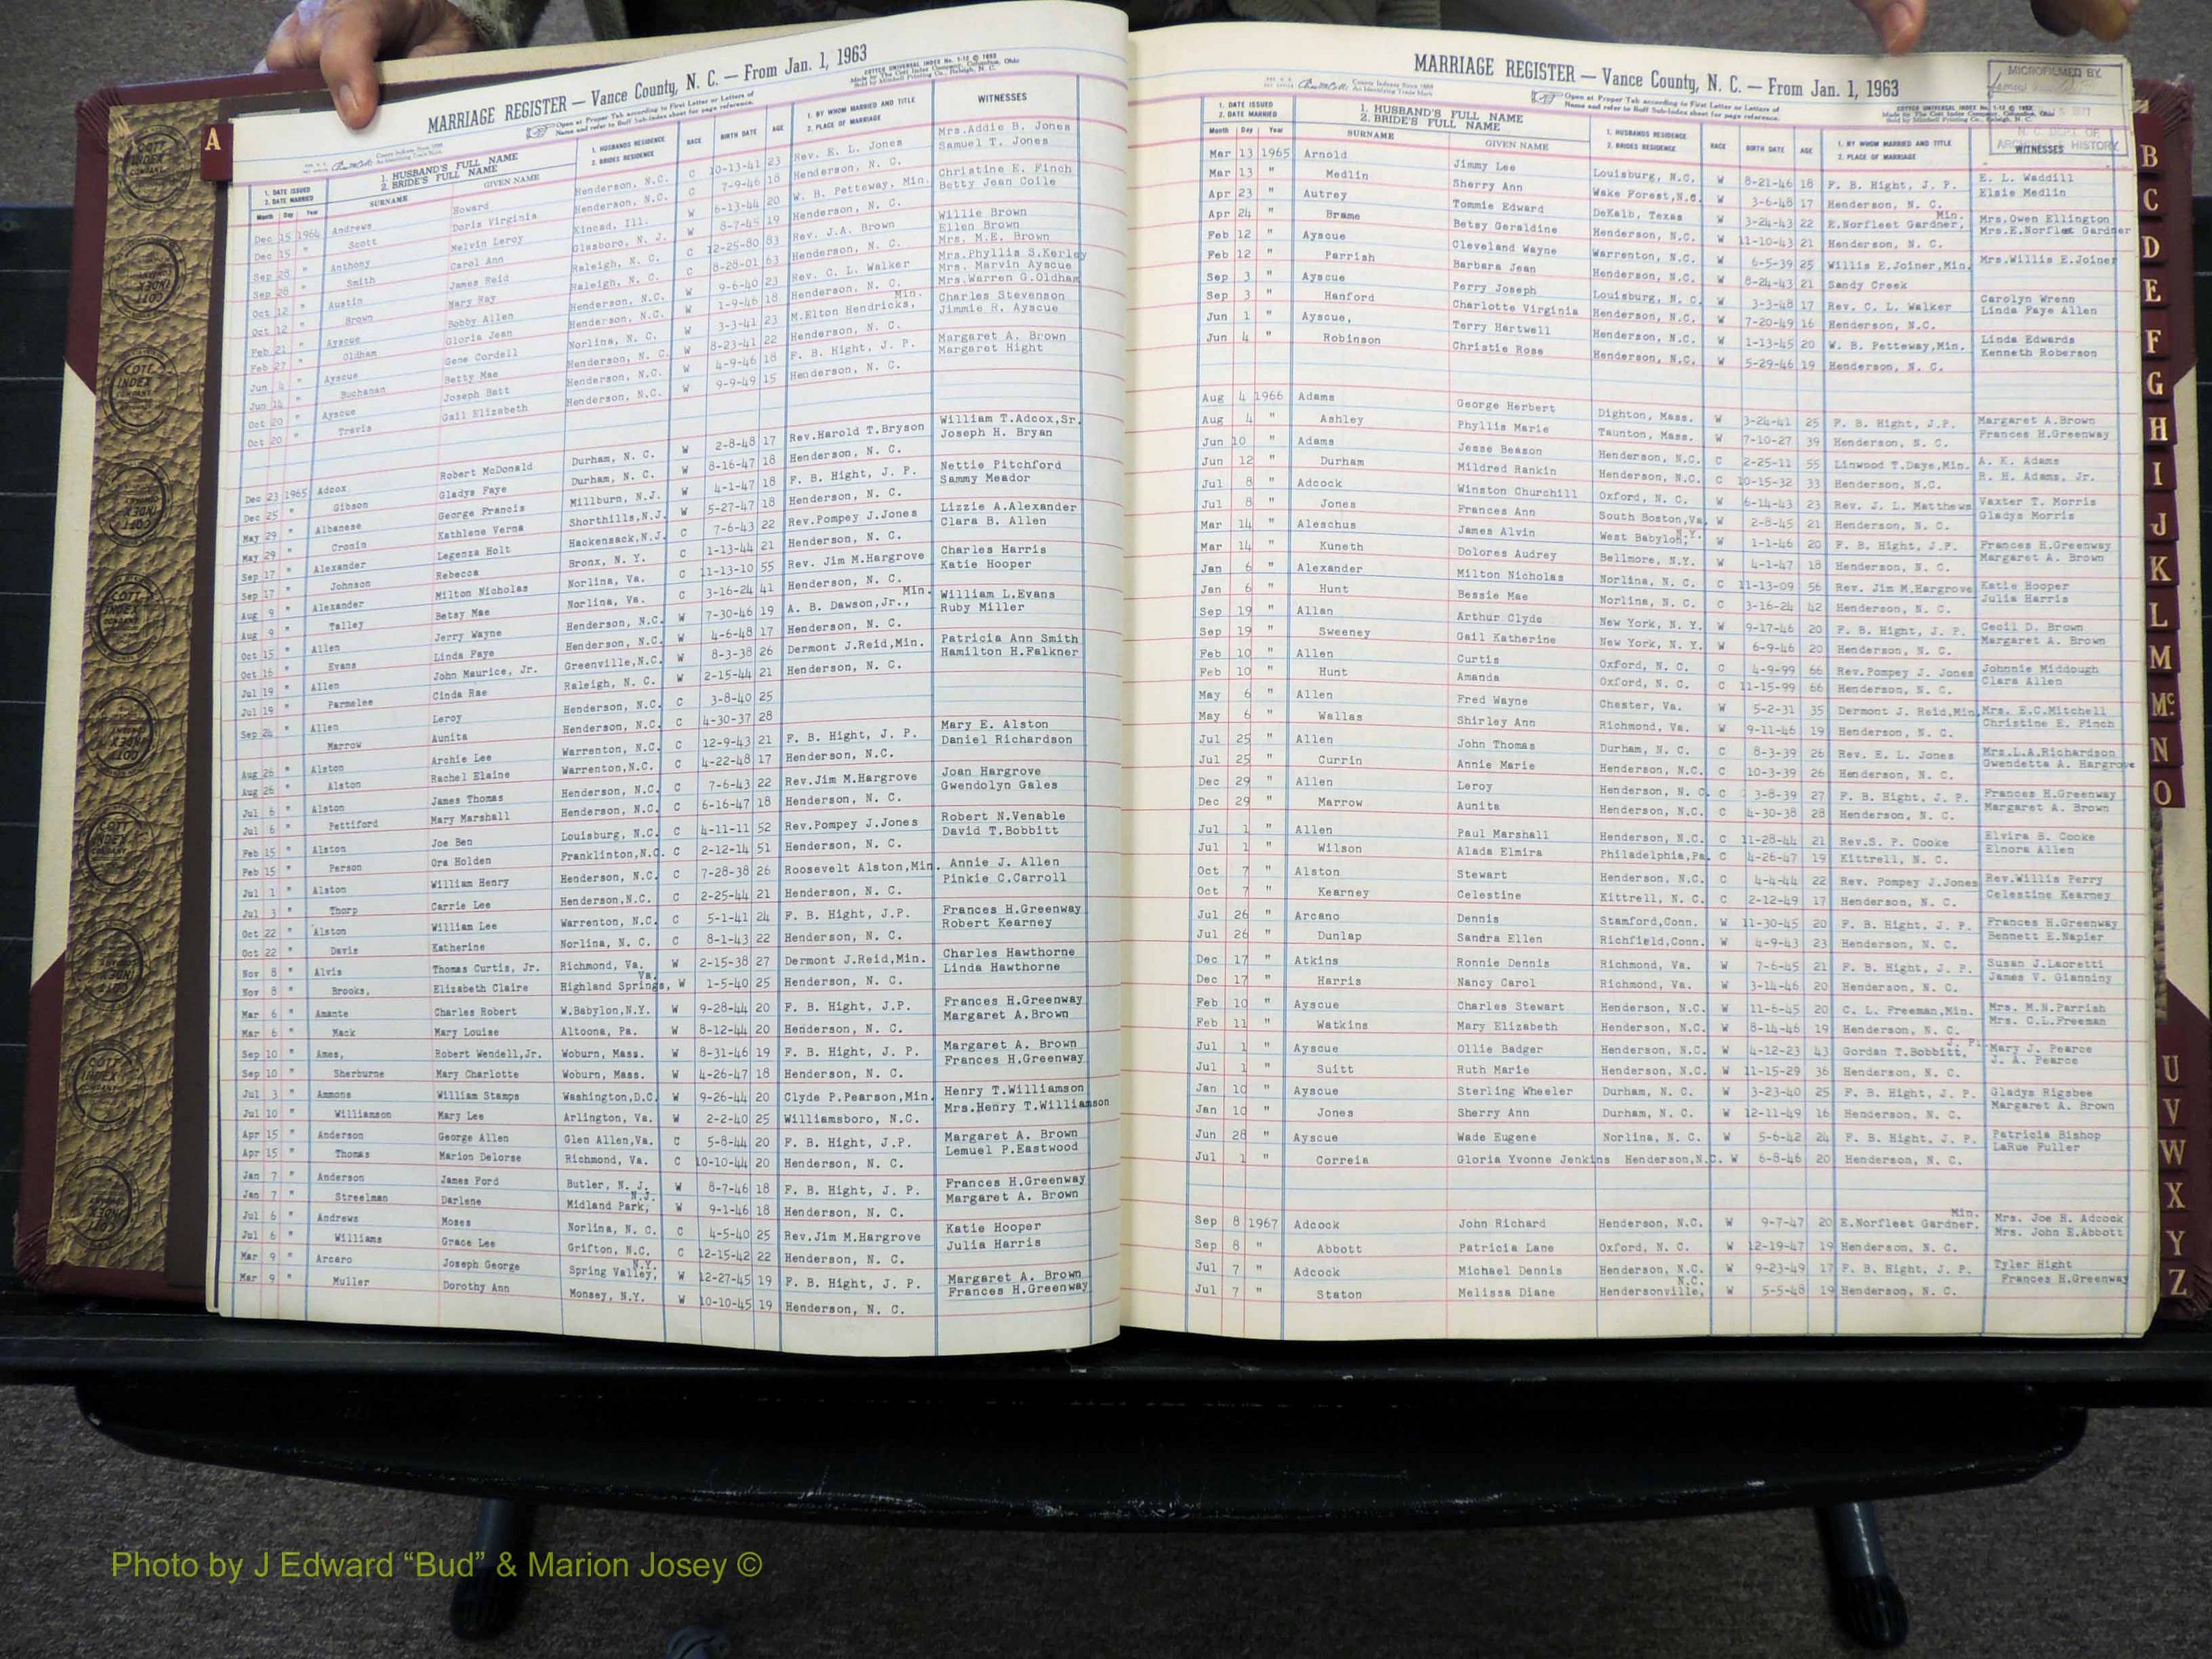 MARRIAGE REGISTER — Vance County, N. C. — From Jan. 1, 1963
Open at Proper Tab according to First Letter or Letters of
Name and refer to Buff Sub-Index sheet for page reference.
COTTER UNIVERSAL INDEX No. 1-12 © 1963
Made by The Cott Index Company, Columbus, Ohio
Sold by Mitchell Printing Co., Raleigh, N. C.
A
1. DATE ISSUED 2. DATE MARRIED 1. HUSBAND'S FULL NAME 2. BRIDE'S FULL NAME 1. HUSBANDS RESIDENCE 2. BRIDES RESIDENCE RACE BIRTH DATE AGE 1. BY WHOM MARRIED AND TITLE 2. PLACE OF MARRIAGE WITNESSES
Month Day Year SURNAME GIVEN NAME
Dec 15 1964 Andrews Howard Henderson, N.C. C 10-13-41 23 Rev. E. L. Jones Mrs.Addie B. Jones
Dec 15 " Scott Doris Virginia Henderson, N.C. C 7-9-46 18 Henderson, N. C. Samuel T. Jones
Sep 28 " Anthony Melvin Leroy Kincad, Ill. W 6-13-44 20 W. B. Petteway, Min. Christine E. Finch
Sep 28 " Smith Carol Ann Glasboro, N. J. W 8-7-45 19 Henderson, N. C. Betty Jean Coile
Oct 12 " Austin James Reid Raleigh, N. C. C 12-25-80 83 Rev. J.A. Brown Willie Brown
Ellen Brown
Oct 12 " Brown Mary Ray Raleigh, N. C. C 8-28-01 63 Henderson, N. C. Mrs. M.E. Brown
Feb 21 " Ayscue Bobby Allen Henderson, N.C. W 9-6-40 23 Rev. C. L. Walker Mrs.Phyllis S.Kerley
Mrs. Marvin Ayscue
Feb 27 " Oldham Gloria Jean Henderson, N.C. W 1-9-46 18 Henderson, N. C. Mrs.Warren G.Oldham
Jun 4 " Ayscue Gene Cordell Norlina, N. C. W 3-3-41 23 M.Elton Hendricks, Min. Charles Stevenson
Jun 14 " Buchanan Betty Mae Henderson, N. C. W 8-23-41 22 Henderson, N. C. Jimmie R. Ayscue
Oct 20 " Ayscue Joseph Batt Henderson, N.C. W 4-9-46 18 F. B. Hight, J. P. Margaret A. Brown
Oct 20 " Travis Gail Elizabeth Henderson, N.C. W 9-9-49 15 Henderson, N. C. Margaret Hight
Dec 23 1965 Adcox Robert McDonald Durham, N. C. W 2-8-48 17 Rev.Harold T.Bryson William T.Adcox,Sr.
Dec 25 " Gibson Gladys Faye Durham, N. C. W 8-16-47 18 Henderson, N. C. Joseph H. Bryan
May 29 " Albanese George Francis Millburn, N.J. W 4-1-47 18 F. B. Hight, J. P. Nettie Pitchford
May 29 " Cronin Kathlene Verna Shorthills,N.J. W 5-27-47 18 Henderson, N. C. Sammy Meador
Sep 17 " Alexander Legenza Holt Hackensack,N.J. C 7-6-43 22 Rev.Pompey J.Jones Lizzie A.Alexander
Sep 17 " Johnson Rebecca Bronx, N. Y. C 1-13-44 21 Henderson, N. C. Clara B. Allen
Aug 9 " Alexander Milton Nicholas Norlina, Va. C 11-13-10 55 Rev. Jim M.Hargrove Charles Harris
Aug 9 " Talley Betsy Mae Norlina, Va. C 3-16-24 41 Henderson, N. C. Katie Hooper
Oct 15 " Allen Jerry Wayne Henderson, N.C. W 7-30-46 19 A. B. Dawson,Jr., Min. William L.Evans
Oct 16 " Evans Linda Faye Henderson, N.C. W 4-6-48 17 Henderson, N. C. Ruby Miller
Jul 19 " Allen John Maurice, Jr. Greenville,N.C. W 8-3-38 26 Dermont J.Reid,Min. Patricia Ann Smith
Jul 19 " Parmelee Cinda Rae Raleigh, N. C. W 2-15-44 21 Henderson, N. C. Hamilton H.Falkner
Sep 24 " Allen Leroy Henderson, N.C. C 3-8-40 25
Marrow Aunita Henderson, N.C. C 4-30-37 28
Aug 26 " Alston Archie Lee Warrenton, N.C. C 12-9-43 21 F. B. Hight, J. P. Mary E. Alston
Aug 26 " Alston Rachel Elaine Warrenton,N.C. C 4-22-48 17 Henderson, N.C. Daniel Richardson
Jul 6 " Alston James Thomas Henderson, N.C. C 7-6-43 22 Rev.Jim M.Hargrove Joan Hargrove
Jul 6 " Pettiford Mary Marshall Henderson, N.C. C 6-16-47 18 Henderson, N. C. Gwendolyn Gales
Feb 15 " Alston Joe Ben Louisburg, N.C. C 4-11-11 52 Rev.Pompey J.Jones Robert N.Venable
Feb 15 " Person Ora Holden Franklinton,N.C. C 2-12-14 51 Henderson, N. C. David T.Bobbitt
Jul 1 " Alston William Henry Henderson, N.C. C 7-28-38 26 Roosevelt Alston,Min. Annie J. Allen
Jul 3 " Thorp Carrie Lee Henderson,N.C. C 2-25-44 21 Henderson, N. C. Pinkie C.Carroll
Oct 22 " Alston William Lee Warrenton, N.C. C 5-1-41 24 F. B. Hight, J.P. Frances H.Greenway
Oct 22 " Davis Katherine Norlina, N. C. C 8-1-43 22 Henderson, N. C. Robert Kearney
Nov 8 " Alvis Thomas Curtis, Jr. Richmond, Va. W 2-15-38 27 Dermont J.Reid,Min. Charles Hawthorne
Nov 8 " Brooks, Elizabeth Claire Highland Springs, Va. W 1-5-40 25 Henderson, N. C. Linda Hawthorne
Mar 6 " Amante Charles Robert W.Babylon,N.Y. W 9-28-44 20 F. B. Hight, J.P. Frances H.Greenway
Mar 6 " Mack Mary Louise Altoona, Pa. W 8-12-44 20 Henderson, N. C. Margaret A.Brown
Sep 10 " Ames, Robert Wendell,Jr. Woburn, Mass. W 8-31-46 19 F. B. Hight, J. P. Margaret A. Brown
Sep 10 " Sherburne Mary Charlotte Woburn, Mass. W 4-26-47 18 Henderson, N. C. Frances H.Greenway
Jul 3 " Ammons William Stamps Washington,D.C. W 9-26-44 20 Clyde P.Pearson,Min. Henry T.Williamson
Jul 10 " Williamson Mary Lee Arlington, Va. W 2-2-40 25 Williamsboro, N.C. Mrs.Henry T.Williamson
Apr 15 " Anderson George Allen Glen Allen,Va. C 5-8-44 20 F. B. Hight, J.P. Margaret A. Brown
Apr 15 " Thomas Marion Delorse Richmond, Va. C 10-10-44 20 Henderson, N. C. Lemuel P.Eastwood
Jan 7 " Anderson James Ford Butler, N. J. W 8-7-46 18 F. B. Hight, J. P. Frances H.Greenway
Jan 7 " Streelman Darlene Midland Park, N.J. W 9-1-46 18 Henderson, N. C. Margaret A. Brown
Jul 6 " Andrews Moses Norlina, N. C. C 4-5-40 25 Rev.Jim M.Hargrove Katie Hooper
Jul 6 " Williams Grace Lee Grifton, N.C. C 12-15-42 22 Henderson, N. C. Julia Harris
Mar 9 " Arcaro Joseph George Spring Valley, N.Y. W 12-27-45 19 F. B. Hight, J. P. Margaret A. Brown
Mar 9 " Muller Dorothy Ann Monsey, N.Y. W 10-10-45 19 Henderson, N. C. Frances H.Greenway
MARRIAGE REGISTER — Vance County, N. C. — From Jan. 1, 1963
Open at Proper Tab according to First Letter or Letters of
Name and refer to Buff Sub-Index sheet for page reference.
MICROFILMED BY
N. C. DEPT. OF
ARCHIVES & HISTORY
1. DATE ISSUED 2. DATE MARRIED 1. HUSBAND'S FULL NAME 2. BRIDE'S FULL NAME 1. HUSBANDS RESIDENCE 2. BRIDES RESIDENCE RACE BIRTH DATE AGE 1. BY WHOM MARRIED AND TITLE 2. PLACE OF MARRIAGE WITNESSES
Month Day Year SURNAME GIVEN NAME
Mar 13 1965 Arnold Jimmy Lee Louisburg, N.C. W 8-21-46 18 F. B. Hight, J. P. E. L. Waddill
Mar 13 " Medlin Sherry Ann Wake Forest,N.C. W 3-6-48 17 Henderson, N. C. Elsie Medlin
Apr 23 " Autrey Tommie Edward DeKalb, Texas W 3-24-43 22 E.Norfleet Gardner, Min. Mrs.Owen Ellington
Apr 24 " Brame Betsy Geraldine Henderson, N.C. W 11-10-43 21 Henderson, N. C. Mrs.E.Norfleet Gardner
Feb 12 " Ayscue Cleveland Wayne Warrenton, N.C. W 6-5-39 25 Willis E.Joiner,Min. Mrs.Willis E.Joiner
Feb 12 " Parrish Barbara Jean Henderson, N.C. W 8-24-43 21 Sandy Creek
Sep 3 " Ayscue Perry Joseph Louisburg, N. C. W 3-3-48 17 Rev. C. L. Walker Carolyn Wrenn
Sep 3 " Hanford Charlotte Virginia Henderson, N.C. W 7-20-49 16 Henderson, N.C. Linda Faye Allen
Jun 1 " Ayscue, Terry Hartwell Henderson, N.C. W 1-13-45 20 W. B. Petteway,Min. Linda Edwards
Jun 4 " Robinson Christie Rose Henderson, N.C. W 5-29-46 19 Henderson, N. C. Kenneth Roberson
Aug 4 1966 Adams George Herbert Dighton, Mass. W 3-24-41 25 F. B. Hight, J.P. Margaret A.Brown
Aug 4 " Ashley Phyllis Marie Taunton, Mass. W 7-10-27 39 Henderson, N. C. Frances H.Greenway
Jun 10 " Adams Jesse Beason Henderson, N.C. C 2-25-11 55 Linwood T.Daye,Min. A. K. Adams
Jun 12 " Durham Mildred Rankin Henderson, N.C. C 10-15-32 33 Henderson, N.C. R. H. Adams, Jr.
Jul 8 " Adcock Winston Churchill Oxford, N. C. W 6-14-43 23 Rev. J. L. Matthews Vaxter T. Morris
Jul 8 " Jones Frances Ann South Boston,Va. W 2-8-45 21 Henderson, N. C. Gladys Morris
Mar 14 " Aleschus James Alvin West Babylon, N.Y. W 1-1-46 20 F. B. Hight, J.P. Frances H.Greenway
Mar 14 " Kuneth Dolores Audrey Bellmore, N.Y. W 4-1-47 18 Henderson, N. C. Margaret A. Brown
Jan 6 " Alexander Milton Nicholas Norlina, N. C. C 11-13-09 56 Rev. Jim M.Hargrove Katie Hooper
Jan 6 " Hunt Bessie Mae Norlina, N. C. C 3-16-24 42 Henderson, N. C. Julia Harris
Sep 19 " Allan Arthur Clyde New York, N. Y. W 9-17-46 20 F. B. Hight, J. P. Cecil D. Brown
Sep 19 " Sweeney Gail Katherine New York, N. Y. W 6-9-46 20 Henderson, N. C. Margaret A. Brown
Feb 10 " Allen Curtis Oxford, N. C. C 4-9-99 66 Rev.Pompey J. Jones Johnnie Middough
Feb 10 " Hunt Amanda Oxford, N. C. C 11-15-99 66 Henderson, N. C. Clara Allen
May 6 " Allen Fred Wayne Chester, Va. W 5-2-31 35 Dermont J. Reid,Min. Mrs. E.C.Mitchell
May 6 " Wallas Shirley Ann Richmond, Va. W 9-11-46 19 Henderson, N. C. Christine E. Finch
Jul 25 " Allen John Thomas Durham, N. C. C 8-3-39 26 Rev. E. L. Jones Mrs.L.A.Richardson
Jul 25 " Currin Annie Marie Henderson, N.C. C 10-3-39 26 Henderson, N. C. Gwendetta A. Hargrove
Dec 29 " Allen Leroy Henderson, N. C. C 3-8-39 27 F. B. Hight, J. P. Frances H.Greenway
Dec 29 " Marrow Aunita Henderson, N.C. C 4-30-38 28 Henderson, N. C. Margaret A. Brown
Jul 1 " Allen Paul Marshall Henderson, N.C. C 11-28-44 21 Rev.S. P. Cooke Elvira B. Cooke
Jul 1 " Wilson Alada Elmira Philadelphia,Pa. C 4-26-47 19 Kittrell, N. C. Elnora Allen
Oct 7 " Alston Stewart Henderson, N.C. C 4-4-44 22 Rev. Pompey J.Jones Rev.Willis Perry
Oct 7 " Kearney Celestine Kittrell, N. C. C 2-12-49 17 Henderson, N. C. Celestine Kearney
Jul 26 " Arcano Dennis Stamford,Conn. W 11-30-45 20 F. B. Hight, J. P. Frances H.Greenway
Jul 26 " Dunlap Sandra Ellen Richfield,Conn. W 4-9-43 23 Henderson, N. C. Bennett E.Napier
Dec 17 " Atkins Ronnie Dennis Richmond, Va. W 7-6-45 21 F. B. Hight, J. P. Susan J.Laoretti
Dec 17 " Harris Nancy Carol Richmond, Va. W 3-14-46 20 Henderson, N. C. James V. Gianniny
Feb 10 " Ayscue Charles Stewart Henderson, N.C. W 11-6-45 20 C. L. Freeman,Min. Mrs. M.N.Parrish
Feb 11 " Watkins Mary Elizabeth Henderson, N.C. W 8-14-46 19 Henderson, N. C. Mrs. C.L.Freeman
Jul 1 " Ayscue Ollie Badger Henderson, N.C. W 4-12-23 43 Gordan T.Bobbitt, J. P. Mary J. Pearce
Jul 1 " Suitt Ruth Marie Henderson, N.C. W 11-15-29 36 Henderson, N. C. J. A. Pearce
Jan 10 " Ayscue Sterling Wheeler Durham, N. C. W 3-23-40 25 F. B. Hight, J. P. Gladys Rigsbee
Jan 10 " Jones Sherry Ann Durham, N. C. W 12-11-49 16 Henderson, N. C. Margaret A. Brown
Jun 28 " Ayscue Wade Eugene Norlina, N. C. W 5-6-42 24 F. B. Hight, J. P. Patricia Bishop
Jul 1 " Correia Gloria Yvonne Jenkins Henderson,N.C. W 6-8-46 20 Henderson, N. C. LaRue Fuller
Sep 8 1967 Adcock John Richard Henderson, N.C. W 9-7-47 20 E.Norfleet Gardner, Min. Mrs. Joe H. Adcock
Sep 8 " Abbott Patricia Lane Oxford, N. C. W 12-19-47 19 Henderson, N. C. Mrs. John E.Abbott
Jul 7 " Adcock Michael Dennis Henderson, N.C. W 9-23-49 17 F. B. Hight, J. P. Tyler Hight
Jul 7 " Staton Melissa Diane Hendersonville, N.C. W 5-5-48 19 Henderson, N. C. Frances H.Greenway
B
C
D
E
F
G
H
I
J
K
L
M
Mc
N
O
U
V
W
X
Y
Z
Photo by J Edward “Bud” & Marion Josey ©